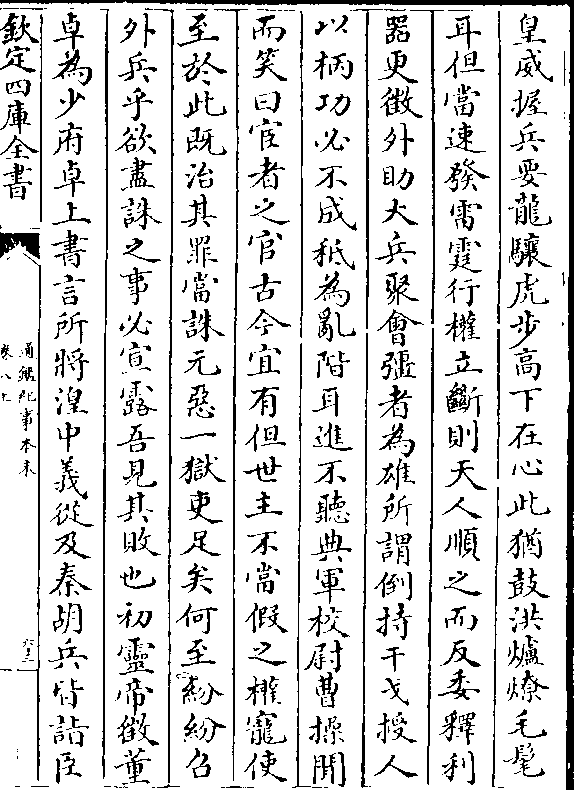 皇威握兵要龍驤虎步高下在心此猶鼓洪爐燎毛髦
耳但當速發雷霆行權立斷則天人順之而反委釋利
器更徵外助大兵聚會彊者為雄所謂倒持干戈授人
以柄功必不成秪為亂階耳進不聽典軍校尉曹操聞
而笑曰宦者之官古今宜有但世主不當假之權寵使
至於此既治其罪當誅元惡一獄吏足矣何至紛紛召
外兵乎欲盡誅之事必宣露吾見其敗也初靈帝徵董
卓為少府卓上書言所將湟中義從及秦胡兵皆詣臣
欽定四庫全書
通鑑紀事本末
卷八上